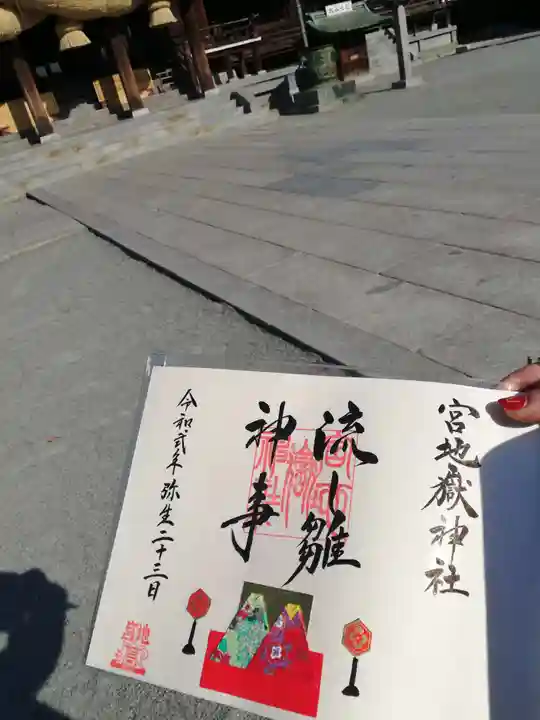 宮地嶽神社
流し雛
神事
令和弐年 弥生二十三日